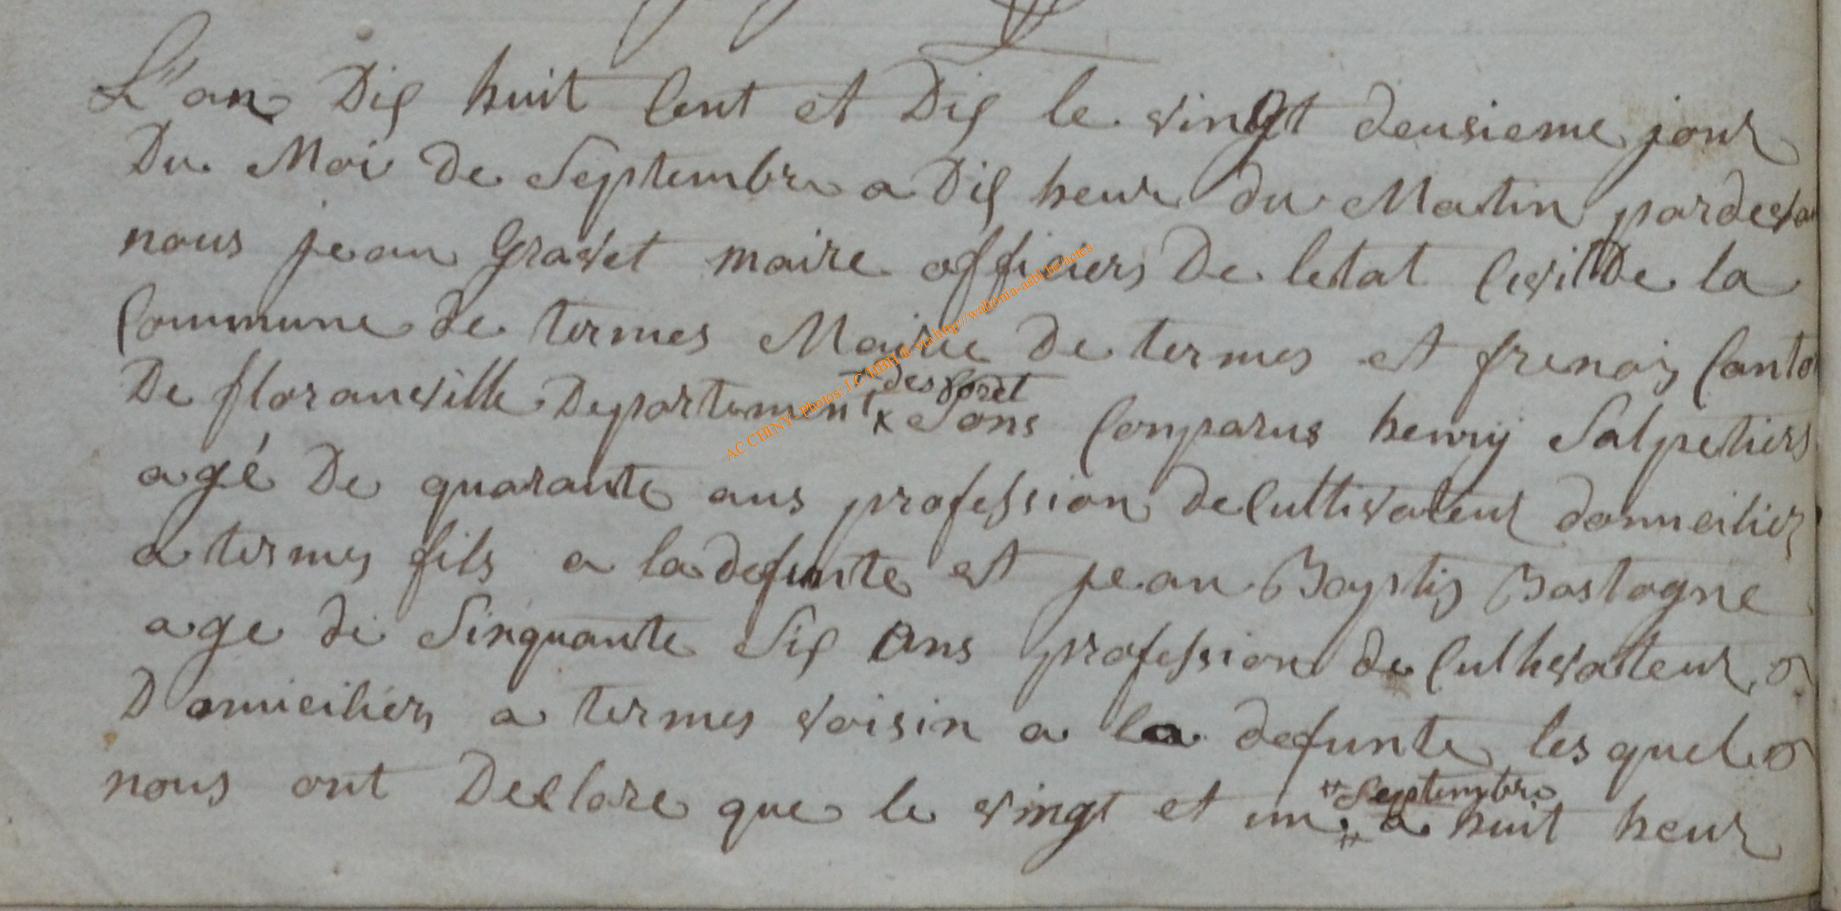 L'an Dix huit Cent et Dix le vingt deusieme jour
Du Moi De Septembre a Dix heur du Matin pardeva
nous jean Gravet maire officiers De letat Civil De la
Commune de termes Mairie De termes et frenois Canto
De floranville Departement des foret Sons Comparus henry Salpetiers
agé De quarante ans profession de Cultivateur domicilier
a termes fils a la defunte et jean Baptis Bastogne
age de Sinquante Six Ans profession de Cultivateur
Domiciliers a termes voisin a la defunte les quel
nous ont Declare que le vingt et un Septembre a huit heur